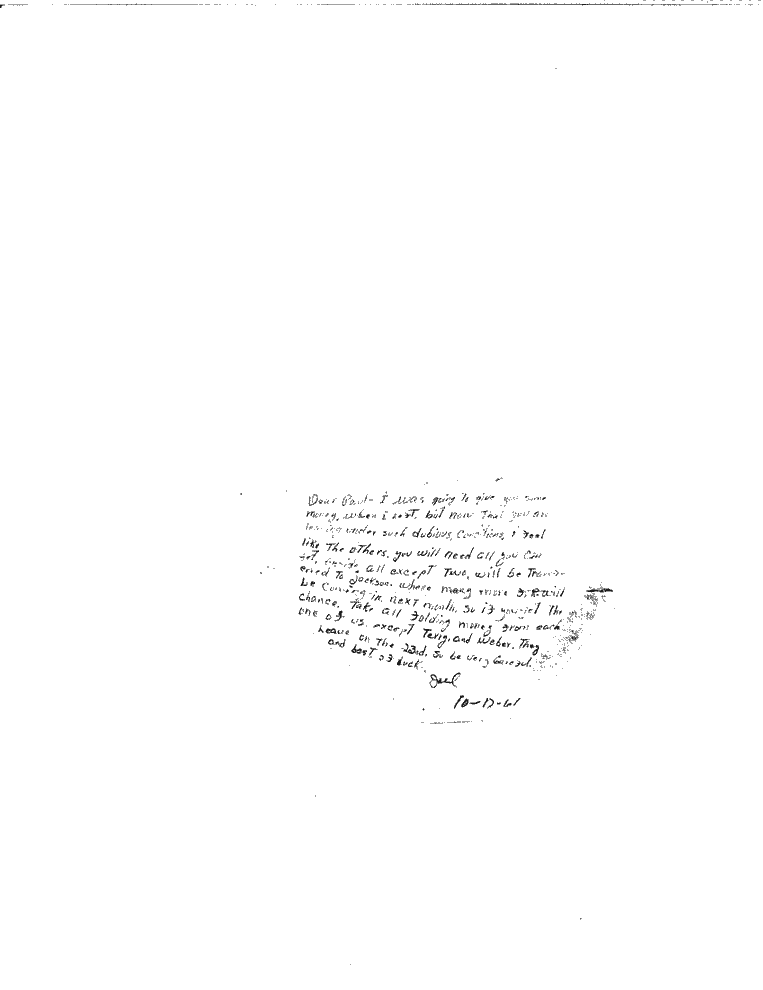 Dear Paul- I was going to give you some
money, when i left, but now That you are
leaving under such dubious, Conditions, i feel
like The oThers, you will need all you Can
get, all excepT Two, will be Transf-
erred To Jackson where many more will
be Coming in nexT month, So if you get The
chance, Take all folding money from each
one of us, excepT and Weber, They
Leave on The 23rd, So be very Careful.
and besT of Luck.
10-17-61